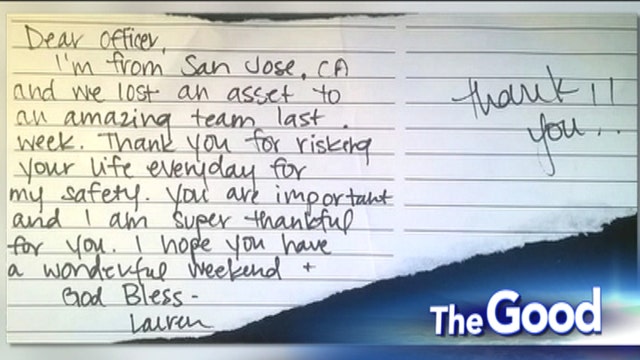 Dear Officer,
I'm from San Jose, CA
and we lost an asset to
an amazing team last
week. Thank you for risking
your life everyday for
my safety. You are important
and I am super thankful
for you. I hope you have
a wonderful weekend +
God Bless -
Lauren
thank!!
you...
The Good